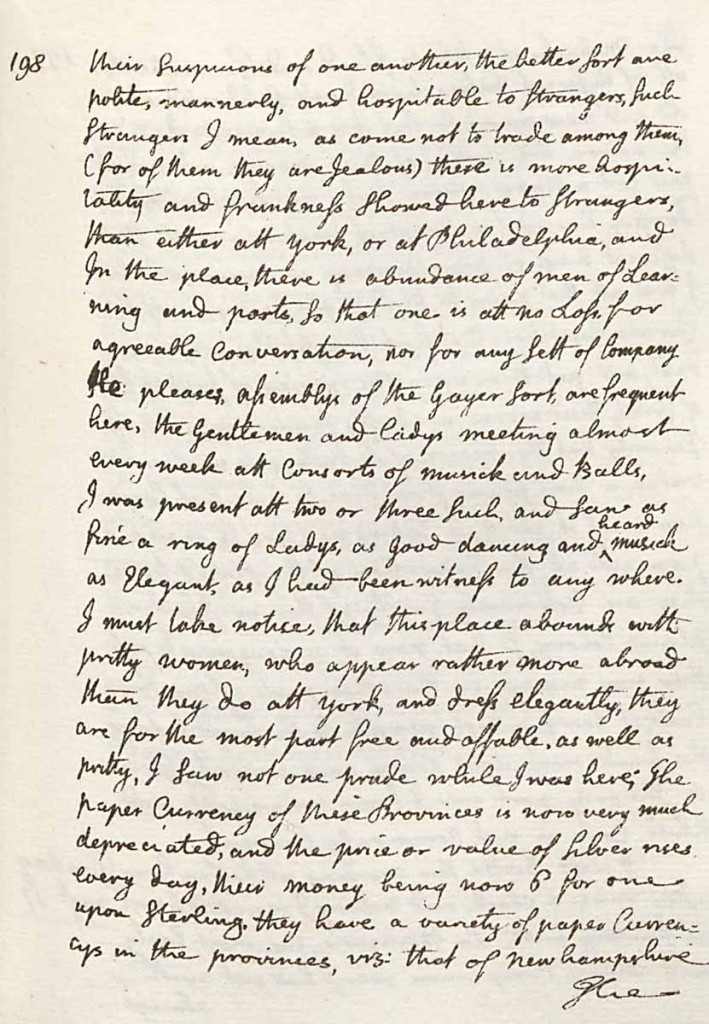 198 their Suspicions of one another, the better sort are
polite, mannerly, and hospitable to strangers, such
Strangers I mean, as come not to trade among them,
(for of them they are Jealous) there is more hospi-
tality and frankness Showed here to strangers,
than either att york, or at Philadelphia, and
In the place, there is abundance of men of Lear-
ning and parts, So that one is att no Loss for
agreeable Conversation, nor for any Sett of Company
He pleases, assemblys of the Gayer Sort, are frequent
here, the Gentlemen and Ladys meeting almost
every week att Consorts of musick and Balls,
I was present att two or three Such, and Saw as
fine a ring of Ladys, as Good dancing and heard musick
as Elegant, as I had been witness to any where.
I must take notise, that this place abounds with
pritty women, who appear rather more abroad
than they do att york, and dress elegantly, they
are for the most part free and affable, as well as
pritty, I Saw not one prude while I was here; The
paper Currency of these Provinces is now very much
depreciated, and the price or value of Silver rises
every day, their money being now 6 for one
upon Sterling. they have a variety of paper Curren-
cys in the provinces, viz: that of newhampshire
The